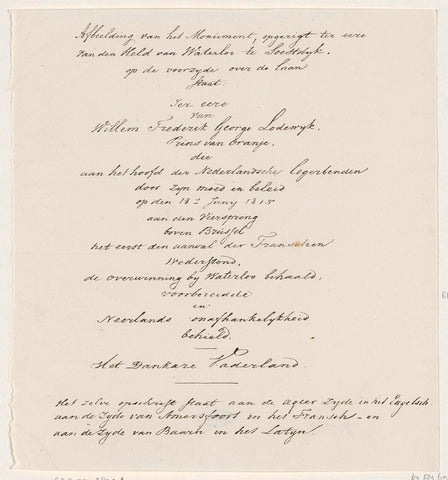 Afbeelding van het Monument, opgeregt ter eere
van den Held van Waterloo te Soestdyk.
op de voorzyde over de Laan
staat:
Ter eere
van
Willem Frederik George Lodewyk,
Prins van Oranje,
die
aan het hoofd der Nederlandsche legerbenden
door zyn moed en beleid
op den Juny 1815
aan den Viersprong
boven Brussel
het eerst den aanval der Franschen
Wederstond,
de overwinning by Waterloo behaald,
voorbereidde
en
Neerlands onafhankelykheid
behield.
Het Dankare Vaderland.
Het zelve opschrift staat aan de agter Zyde in het Engelsch
aan de Zyde van Amersfoort in het Fransch - en
aan de Zyde van Baarn in het Latyn.